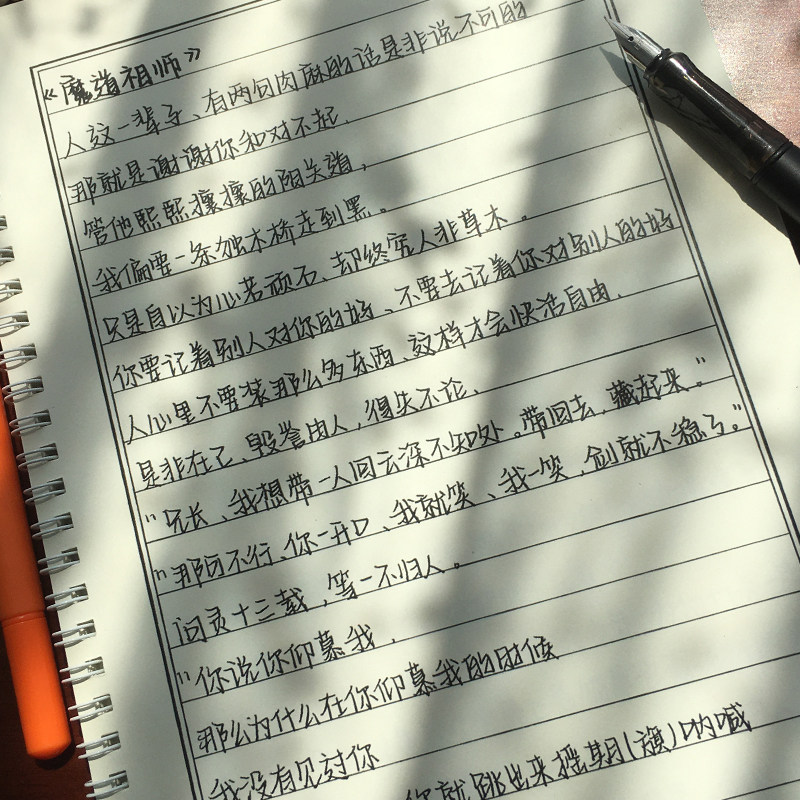 《魔道祖师》
人这一辈子、有两句肉麻的话是非说不可的
那就是谢谢你和对不起.
管他熙熙攘攘的阳关道,
我偏要一条独木桥走到黑。
只是自以为心若顽石、却终究人非草木。
你要记着别人对你的好、不要去记着你对别人的好
人心里不要装那么多东西、这样才会快活自由.
是非在己、毁誉由人,得失不论、
"兄长、我想带一人回云深不知处。带回去,藏起来。"
"那可不行、你一开口、我就笑、我一笑,剑就不稳了。"
问灵十三载,等一不归人。
"你说你仰慕我.
那么为什么在你仰慕我的时候
我没有见过你
你就跳出来摇期(旗)呐喊